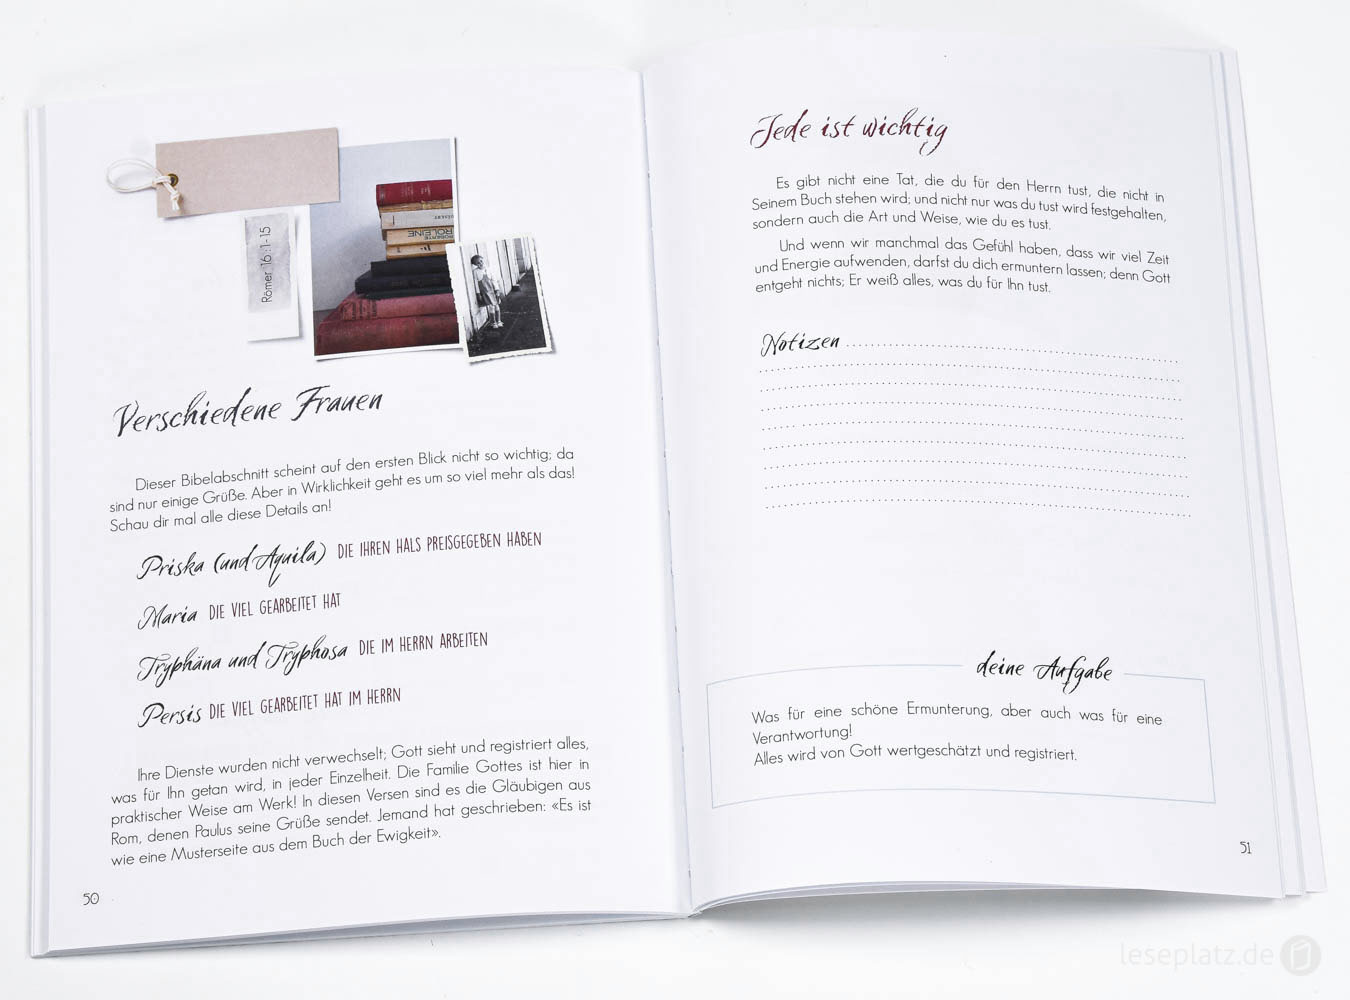 Römer 16:1-15
ROLEINE
Verschiedene Frauen
Dieser Bibelabschnitt scheint auf den ersten Blick nicht so wichtig; da
sind nur einige Grüße. Aber in Wirklichkeit geht es um so viel mehr als das!
Schau dir mal alle diese Details an!
Priska (und Aquila) DIE IHREN HALS PREISGEGEBEN HABEN
Maria DIE VIEL GEARBEITET HAT
Tryphäna und Tryphosa DIE IM HERRN ARBEITEN
Persis DIE VIEL GEARBEITET HAT IM HERRN
Ihre Dienste wurden nicht verwechselt; Gott sieht und registriert alles,
was für Ihn getan wird, in jeder Einzelheit. Die Familie Gottes ist hier in
praktischer Weise am Werk! In diesen Versen sind es die Gläubigen aus
Rom, denen Paulus seine Grüße sendet. Jemand hat geschrieben: «Es ist
wie eine Musterseite aus dem Buch der Ewigkeit».
50
Jede ist wichtig
Es gibt nicht eine Tat, die du für den Herrn tust, die nicht in
Seinem Buch stehen wird; und nicht nur was du tust wird festgehalten,
sondern auch die Art und Weise, wie du es tust.
Und wenn wir manchmal das Gefühl haben, dass wir viel Zeit
und Energie aufwenden, darfst du dich ermuntern lassen; denn Gott
entgeht nichts; Er weiß alles, was du für Ihn tust.
Notizen
deine Aufgabe
Was für eine schöne Ermunterung, aber auch was für eine
Verantwortung!
Alles wird von Gott wertgeschätzt und registriert.
51
leseplatz.de